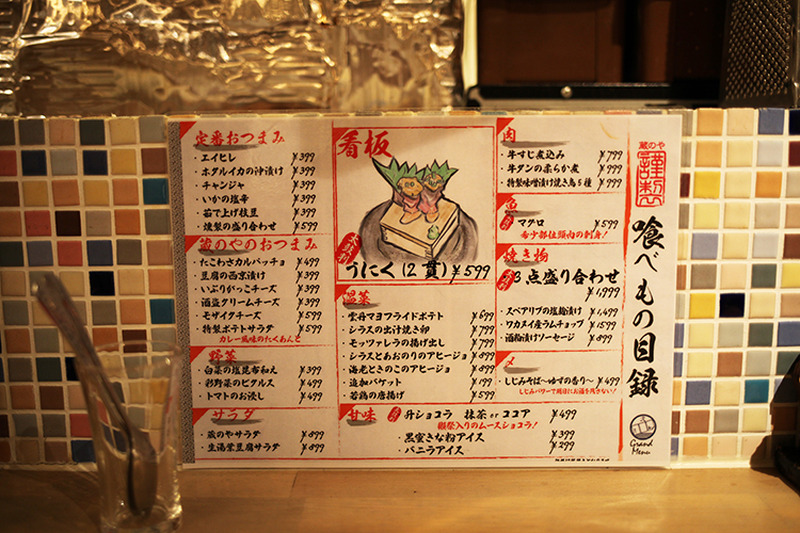 定番おつまみ
・エイヒレ ¥399
・ホタルイカの沖漬け ¥399
・チャンジャ ¥399
・いかの塩辛 ¥399
・茹で上げ枝豆 ¥399
・燻製の盛り合わせ ¥599
蔵のやのおつまみ
・たこわさカルパッチョ ¥499
・豆腐の西京漬け ¥399
・いぶりがっこチーズ ¥399
・酒盗クリームチーズ ¥399
・モザイクチーズ ¥599
・特製ポテトサラダ ¥599
カレー風味のたくあんと
野菜
・白菜の塩昆布和え ¥399
・彩野菜のピクルス ¥499
・トマトのお浸し ¥499
サラダ
・蔵のやサラダ ¥899
・生湯葉豆腐サラダ ¥899
看板
うにく(2貫) ¥599
温菜
・雲丹マヨフライドポテト ¥699
・シラスの出汁焼き卵 ¥799
・モッツァレラの揚げ出し ¥799
・シラスとあおのりのアヒージョ ¥899
・海老ときのこのアヒージョ ¥899
・追加バケット ¥199
・若鶏の唐揚げ ¥599
甘味
生ショコラ 抹茶 or ココア ¥499
獺祭入りのムースショコラ!
・黒蜜きな粉アイス ¥399
・バニラアイス ¥299
肉
・牛すじ煮込み ¥799
・牛タンの柔らか煮 ¥999
・特製味噌漬け焼き鳥5種 ¥999
魚
マグロ ¥599
希少部位頭肉の刺身!
焼き物
3点盛り合わせ ¥1,999
・スペアリブの塩麹漬け ¥1,499
・ワカヌイ産ラムチョップ ¥1599
・酒粕漬けソーセージ ¥899
〆
・しじみそば〜ゆずの香り〜 ¥499
しじみパワーで明日にお酒を残さない!
蔵のや
謹製
喰べもの目録
Grand
Menu